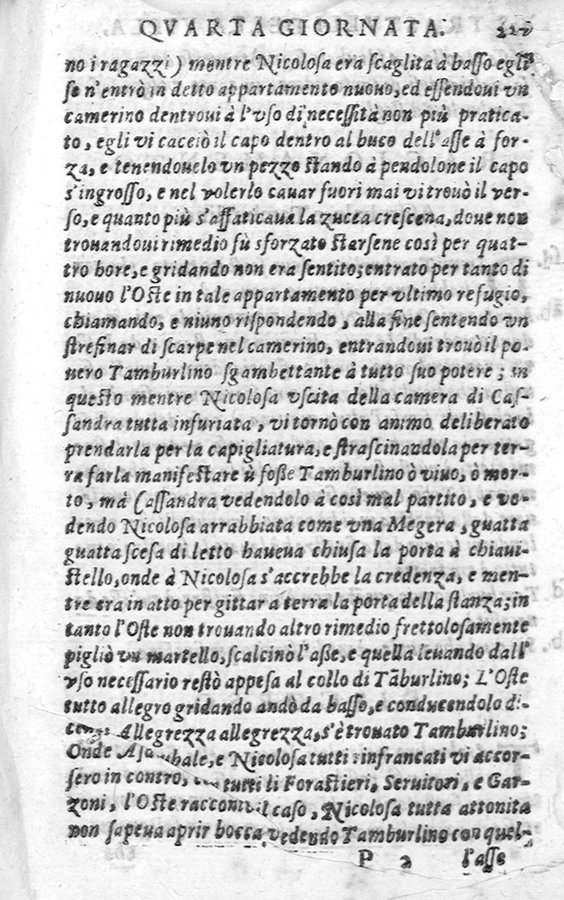 QVARTA GIORNATA.
no i ragazzi) mentre Nicolosa era scaglita à basso egli
se n'entrò in detto appartamento nuouo, ed essendoui vn
camerino dentroui à l'vso di necessità non più pratica-
to, egli vi cacciò il capo dentro al buco dell'asse à for-
za, e tenendouelo vn pezzo stando à pendolone il capo
s'ingrosso, e nel volerlo cauar fuori mai vi trouò il ver-
so, e quanto più s'affaticaua la zucca cresceua, doue non
trouandoui rimedio fù sforzato starsene così per quat-
tro hore, e gridando non era sentito; entrato per tanto di
nuouo l'Oste in tale appartamento per vltimo refugio,
chiamando, e niuno rispondendo, alla fine sentendo vn
strefinar di scarpe nel camerino, entrandoui trouò il po-
uero Tamburlino sgambettante à tutto suo potere; in
questo mentre Nicolosa vscita della camera di Cas-
sandra tutta infuriata, vi tornò con animo deliberato
prendarla per la capigliatura, e strascinandola per ter-
ra farla manifestare ù foße Tamburlino ò viuo, ò mor-
to, mà Cassandra vedendolo à così mal partito, e ve-
dendo Nicolosa arrabbiata come vna Megera, guatta
guatta scesa di letto haueua chiusa la porta à chiaui-
stello, onde à Nicolosa s'accrebbe la credenza, e men-
tre era in atto per gittar à terra la porta della stanza; in
tanto l'Oste non trouando altro rimedio frettolosamente
pigliò vn martello, scalcinò l'aße, e quella leuando dall'
vso necessario restò appesa al collo di Tãburlino; L'Oste
tutto allegro gridando andò da basso, e conducendolo di-
Allegrezza allegrezza, s'è trouato Tamburlino;
Onde e Nicolosa tutti rinfrancati vi accor-
sero in contro, tutti li Forastieri, Seruitori, e Gar-
zoni, l'Oste il caso, Nicolosa tutta attonita
non sapeua aprir bocca vedendo Tamburlino con quel-
P 2 l'asse